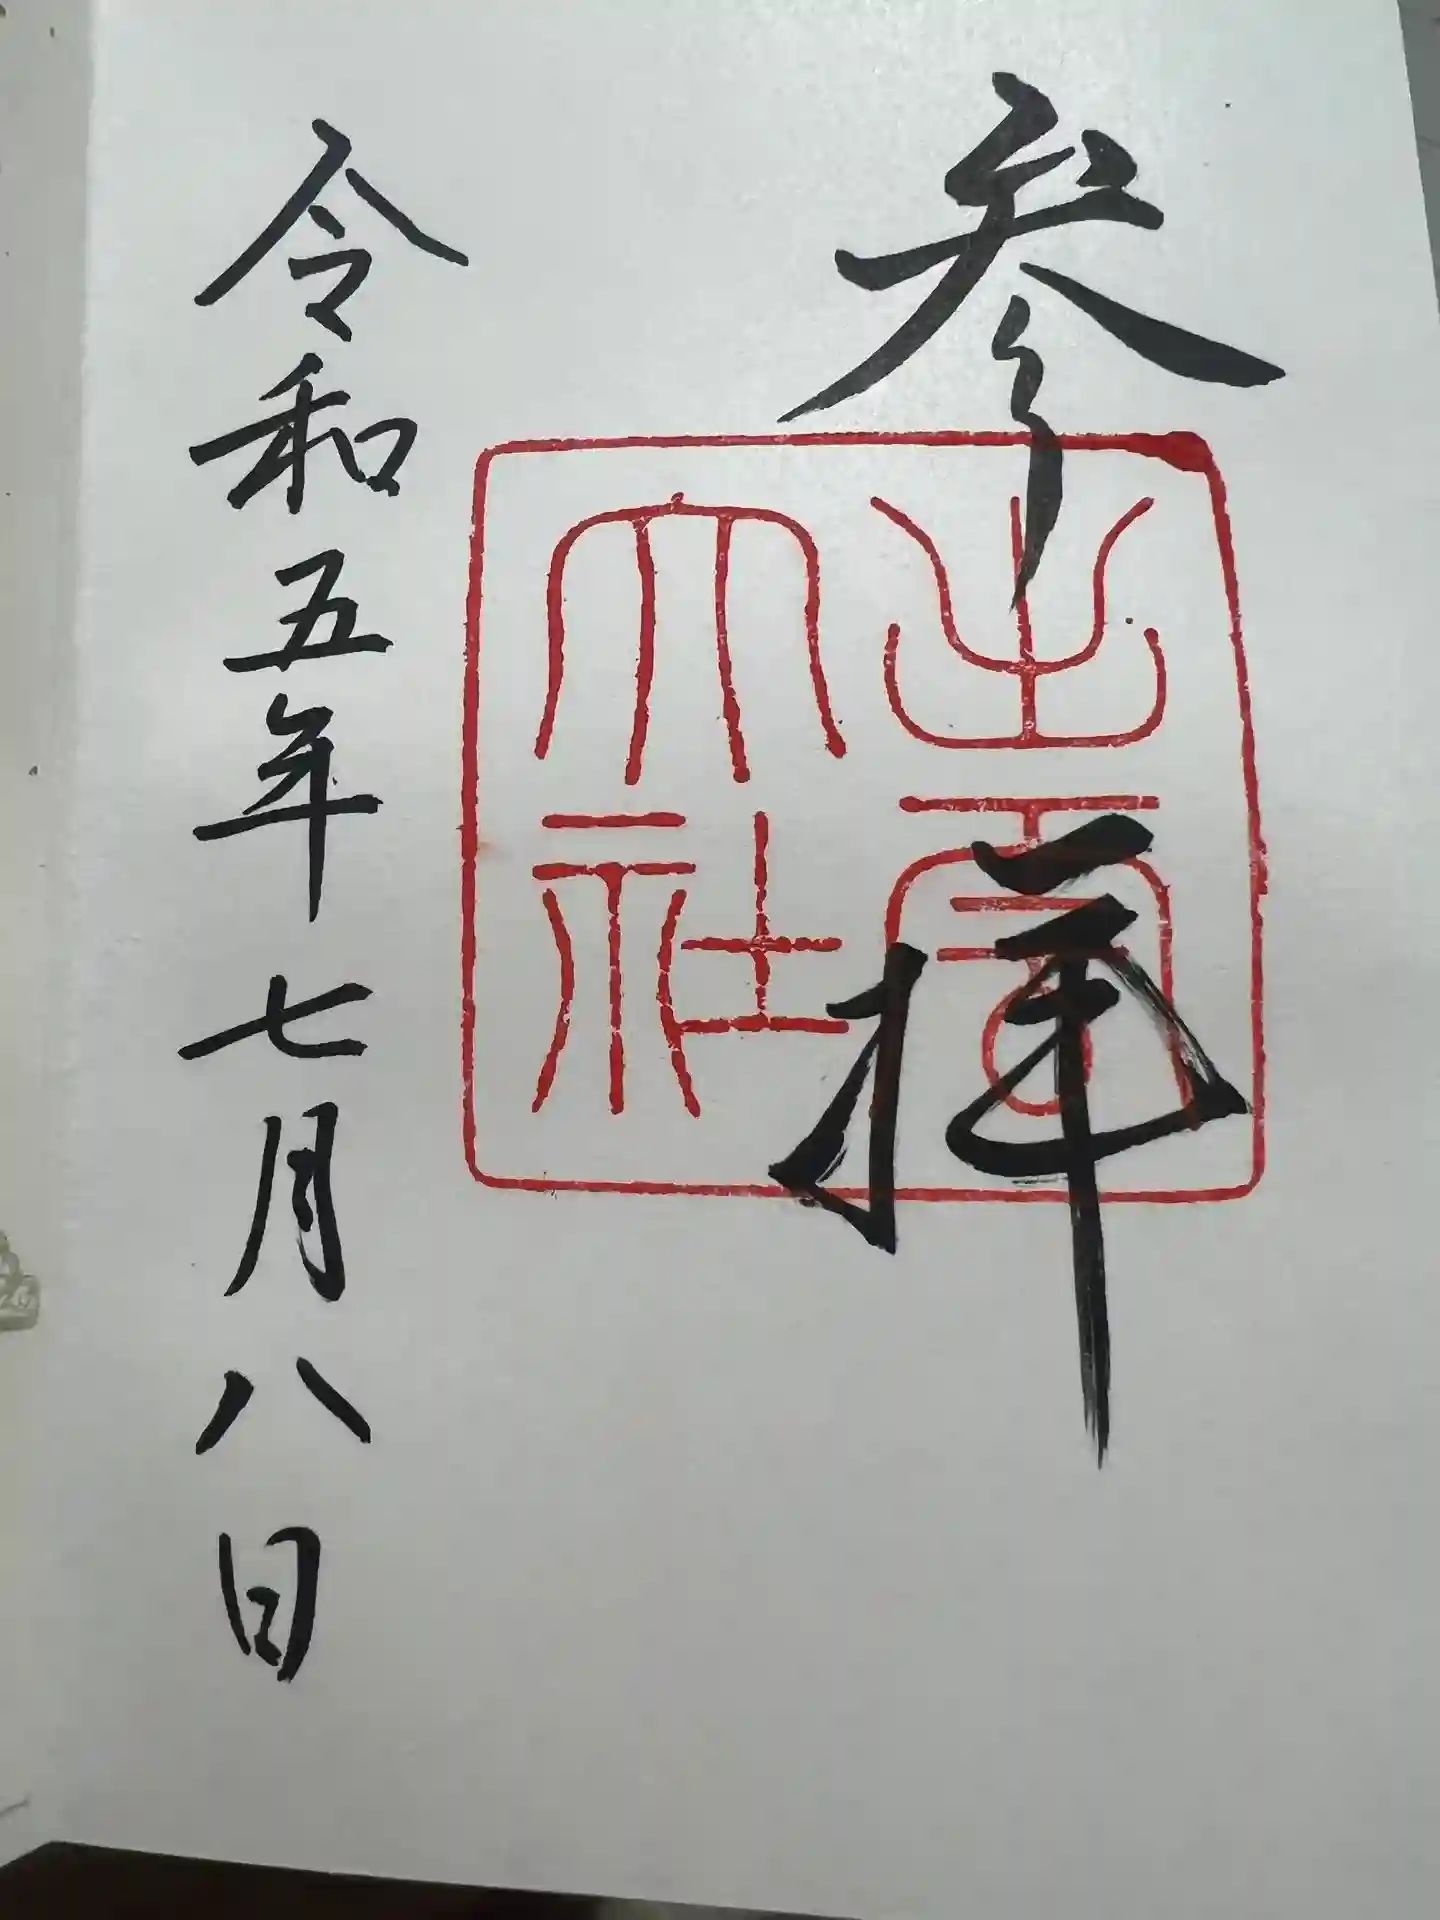 参拝
出雲
大社
令和五年七月八日